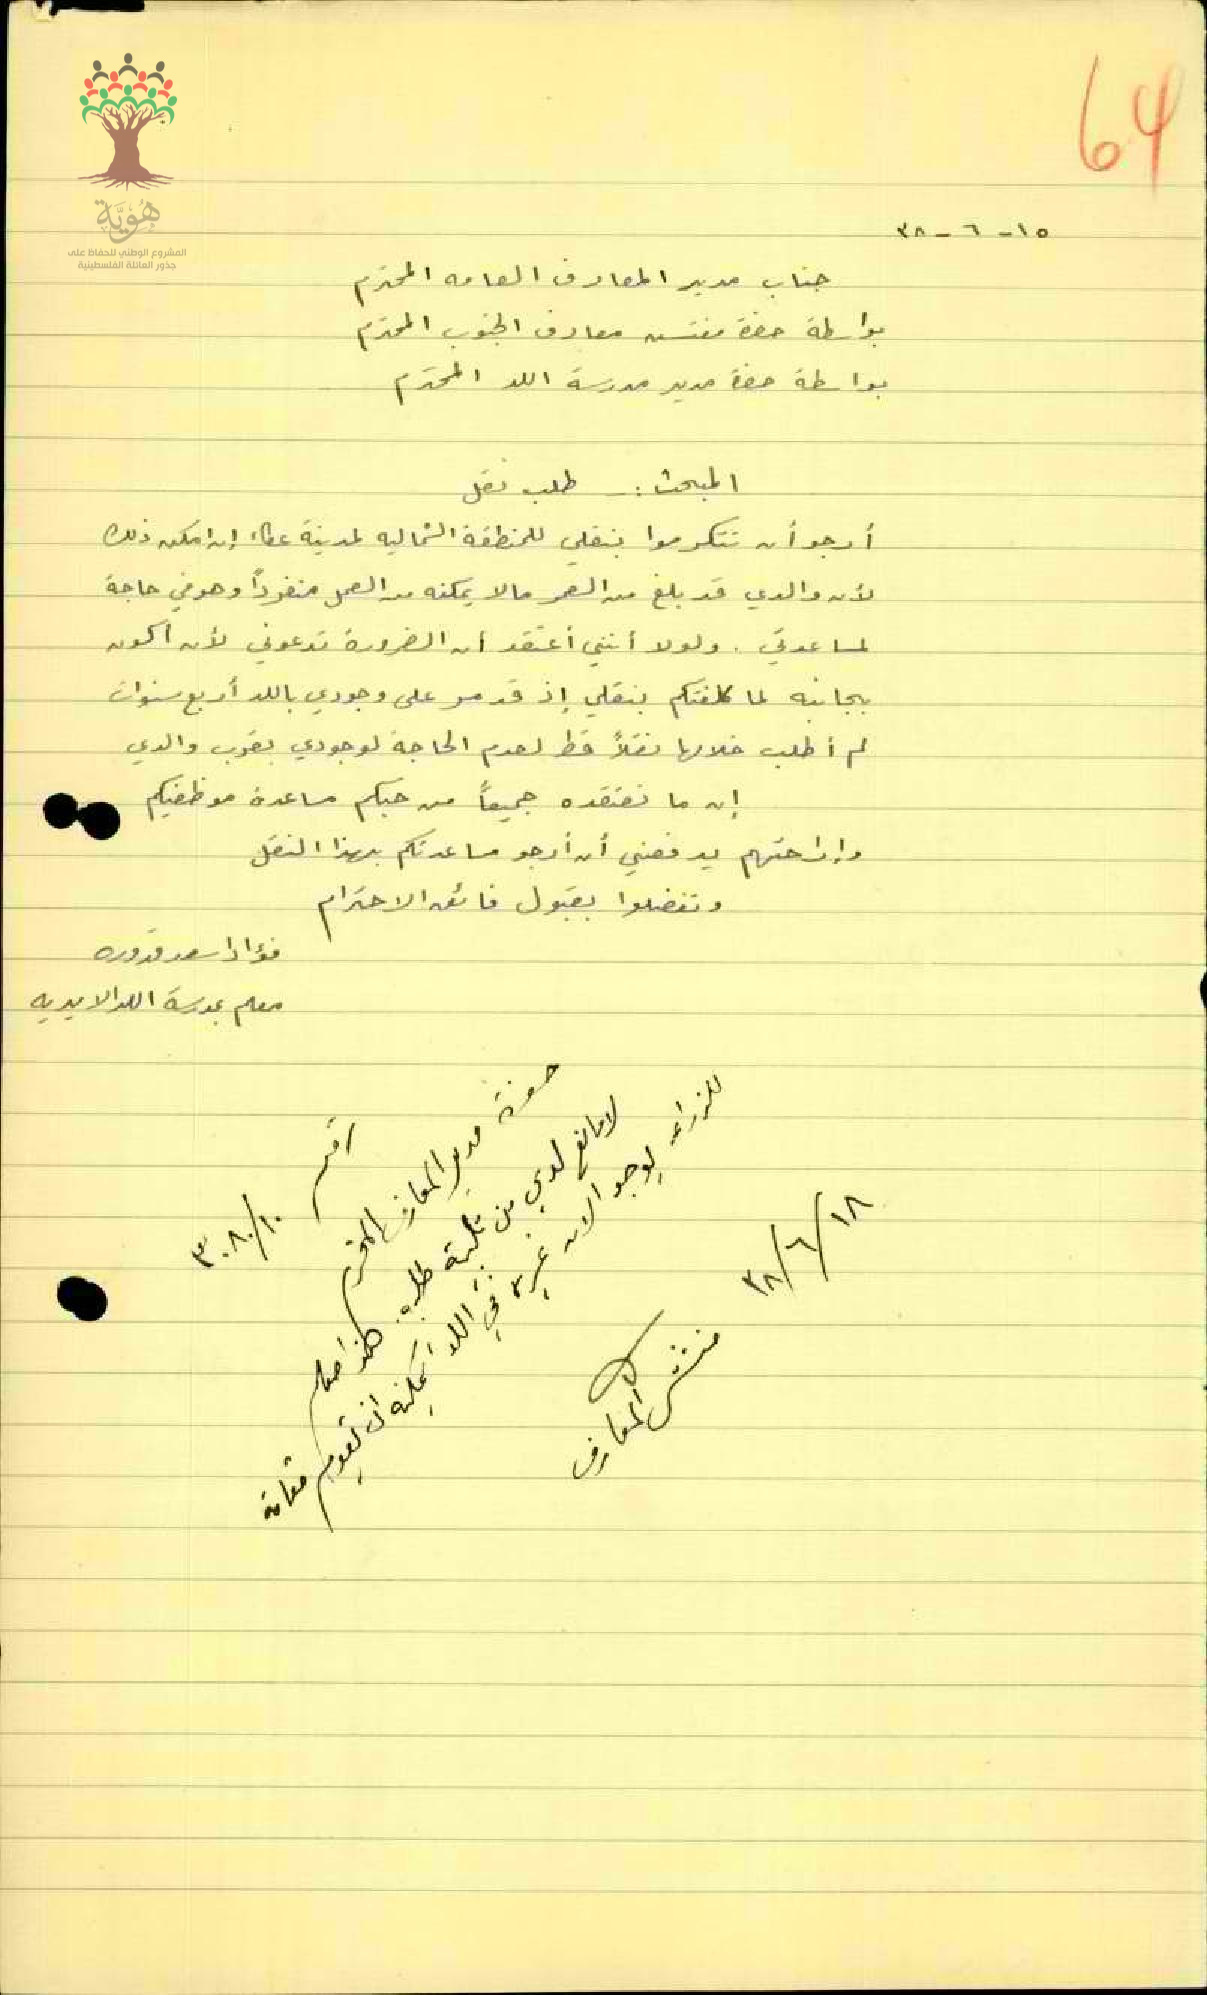 64
هُوِيَّة
المشروع الوطني للحفاظ على
جذور العائلة الفلسطينية
١٥-٦-٣٨
جناب مدير المعارف العامه المحترم
بواسطة حضرة مفتش معارف الجنوب المحترم
بواسطة حضرة مدير مدرسة اللد المحترم
المبحث :- طلب نقل
أرجو أن تتكرموا بنقلي للمنطقة الشماليه لمدينة عكاء إن امكن ذلك
لأن والدي قد بلغ من العمر مالا يمكنه من العمل منفرداً وهو في حاجة
لمساعدتي . ولولا أنني أعتقد أن الضرورة تدعوني لأن أكون
بجانبه لما كلفتكم بنقلي إذ قد مر على وجودي باللد أربع سنوات
لم أطلب خلالها نقلاً قط لعدم الحاجة لوجودي بقرب والدي
إن ما نعتقده جميعاً من حبكم مساعدة موظفيكم
وإراحتهم يدفعني أن أرجو مساعدتكم بهذا النقل
وتفضلوا بقبول فائق الاحترام
فؤاد اسعد قدوره
معلم بمدرسة اللد الاميريه
رقم ٣٠٨٠/١٠
حضرة مدير المعارف المحترم
لا مانع لدي من تلبية طلبه. هذا معلم
للزراعه يوجد الان غيره في اللد يمكنه ان يقوم مقامه
١٨/٦/٣٨
مفتش المعارف